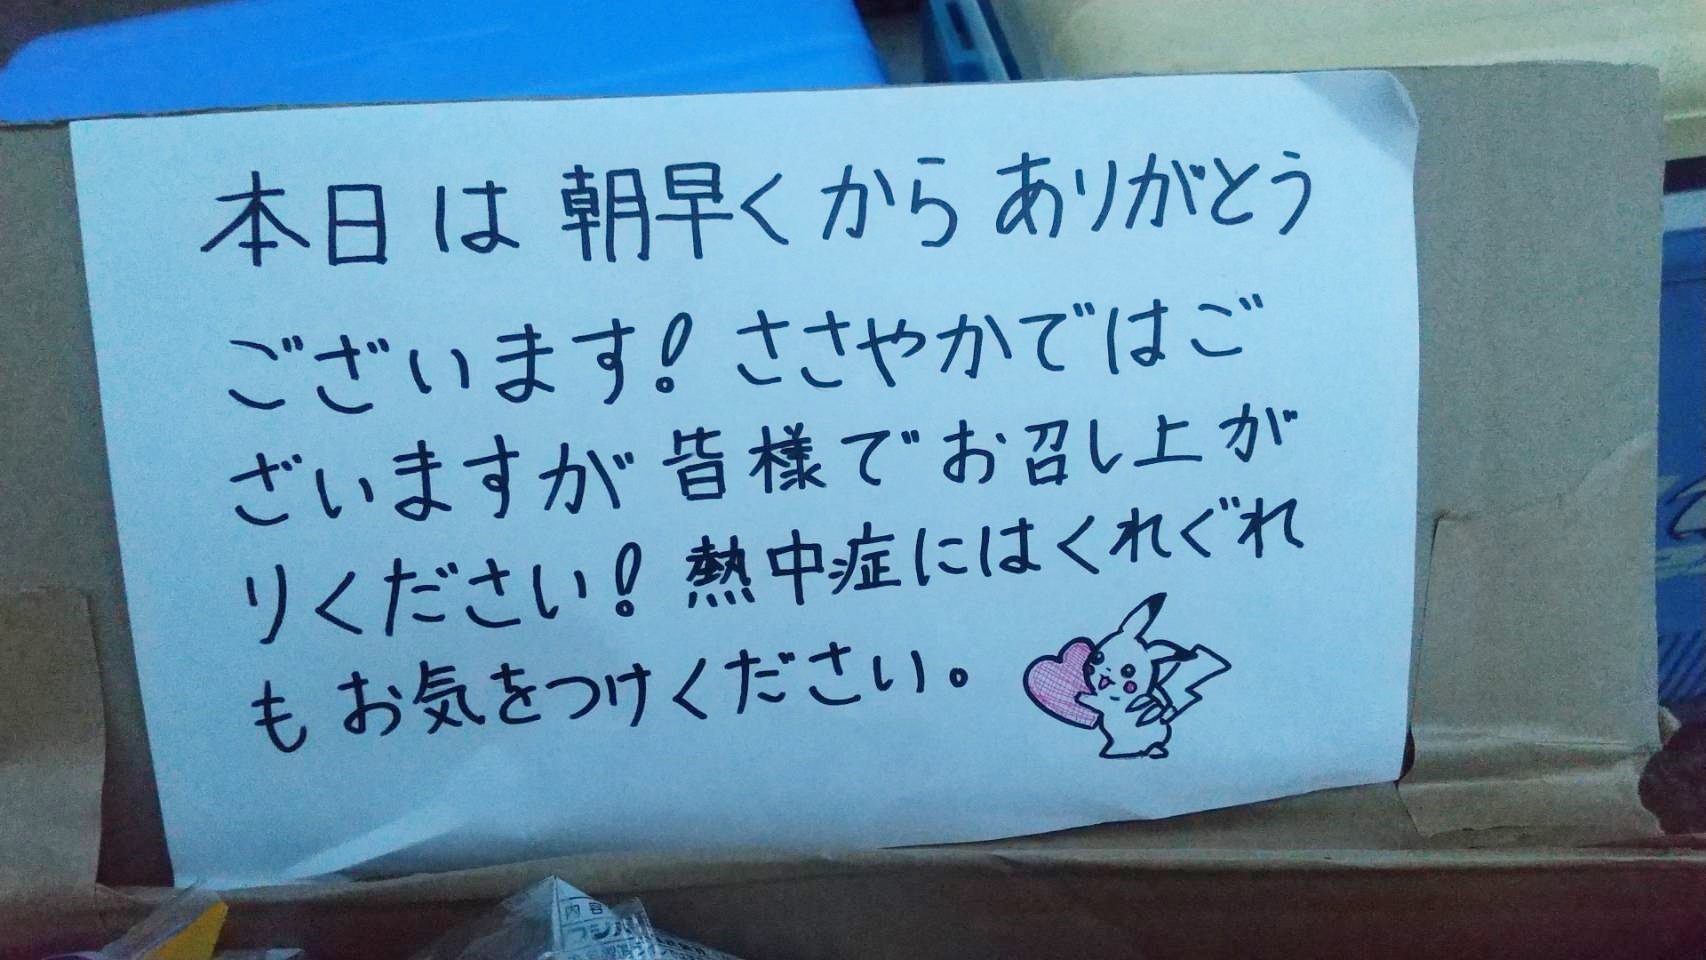 本日は朝早くからありがとう
ございます!ささやかではご
ざいますが皆様でお召し上が
りください!熱中症にはくれぐれ
もお気をつけください。
内容